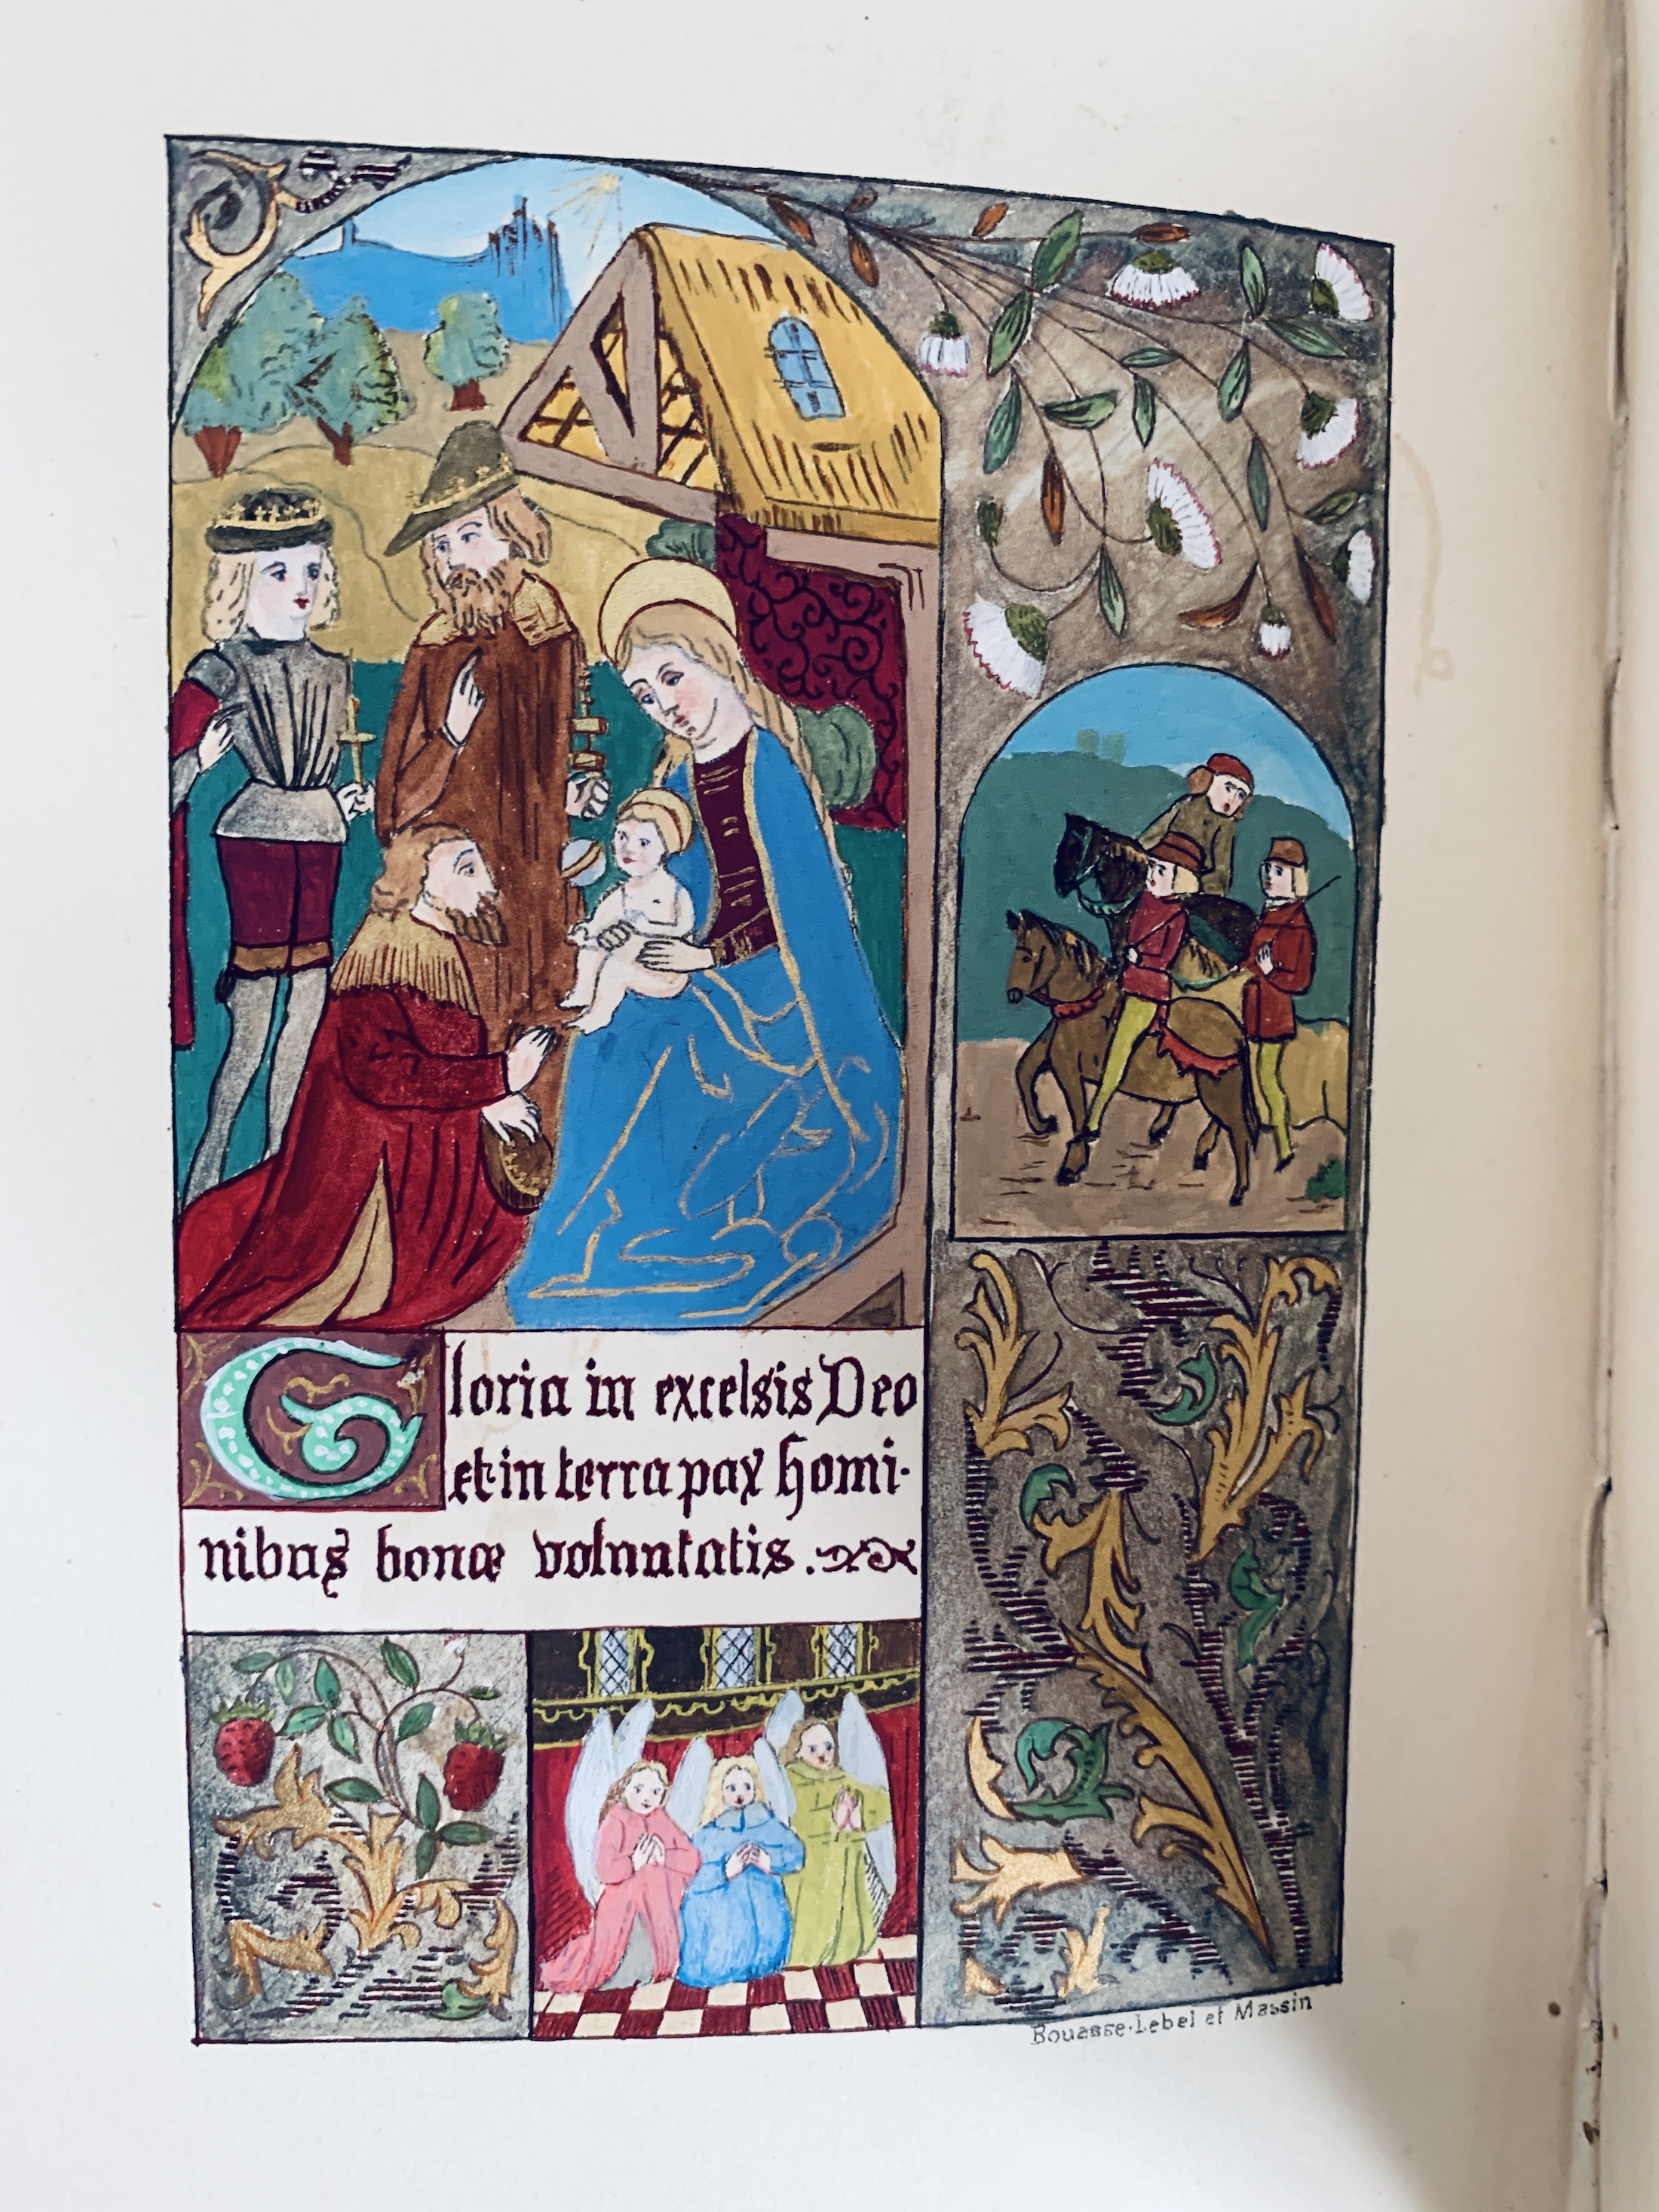 Gloria in excelsis Deo
et in terra pax homi-
nibus bonæ voluntatis.
Bouasse-Lebel et Massin